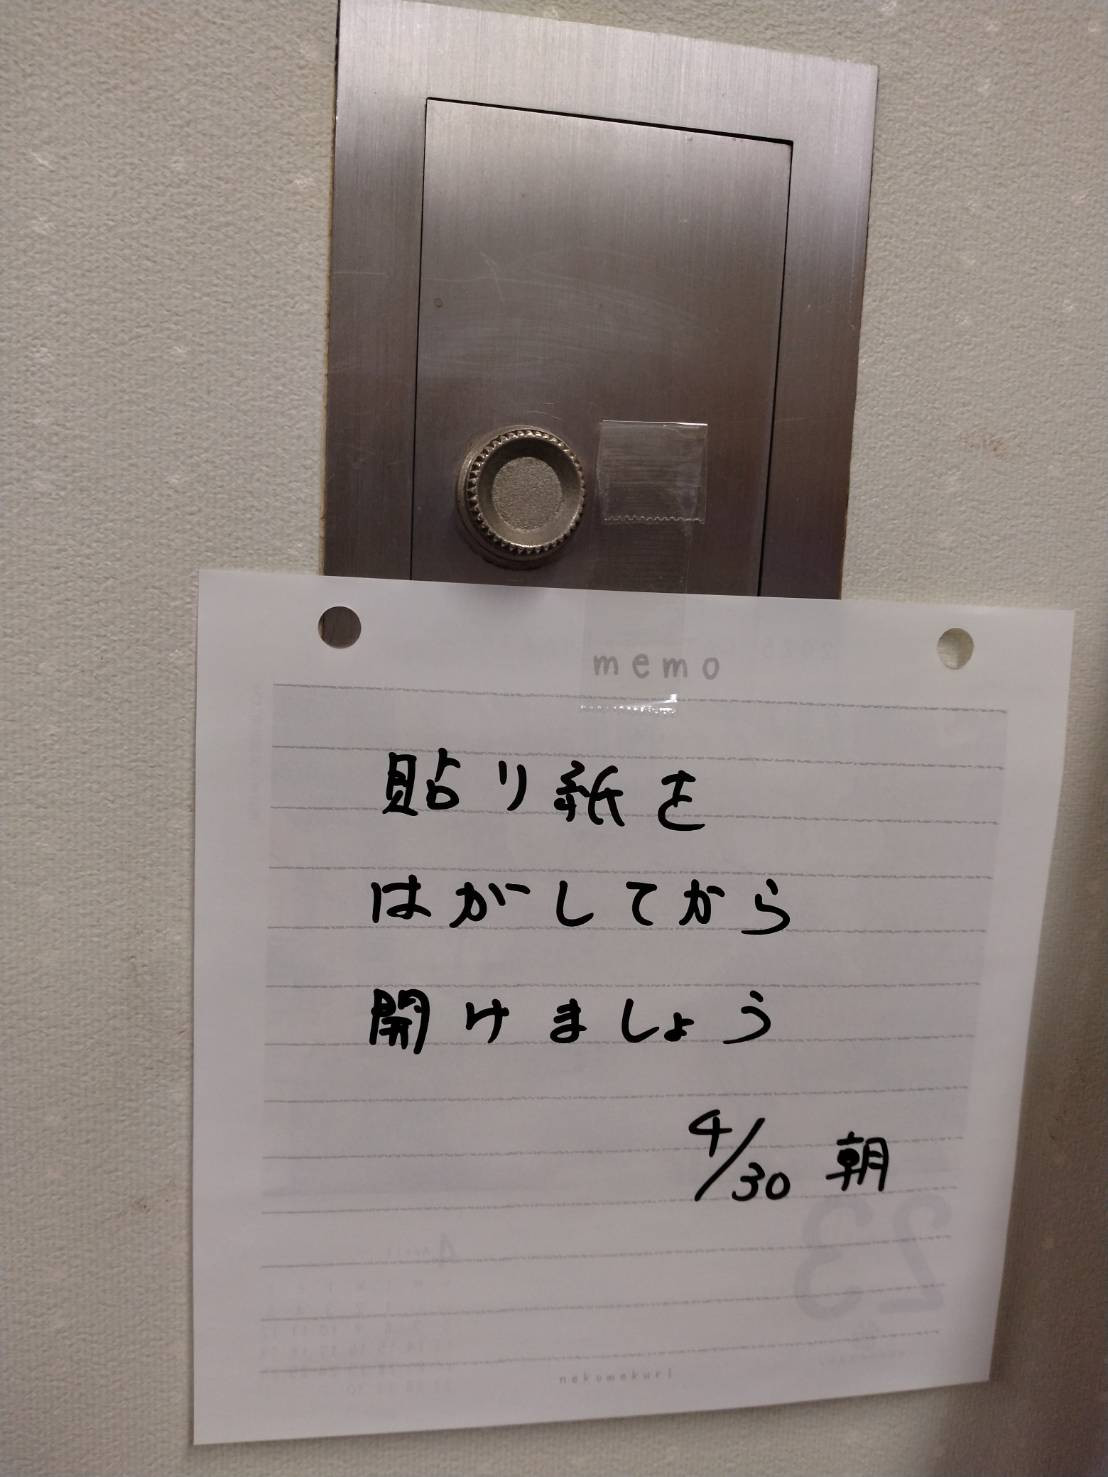 memo
貼り紙を
はがしてから
開けましょう
4/30 朝
23
nekomekuri